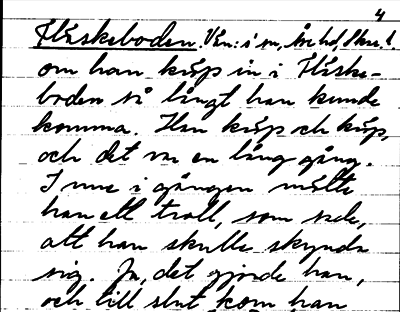 4
Fläskeboden.
om han kröp in i Fläske-
boden så långt han kunde
komma. Han kröp och kröp,
och det var en lång gång.
Inne i gången mötte
han ett troll, som sade,
att han skulle skynda
sig. Ja, det gjorde han,
och till slut kom han